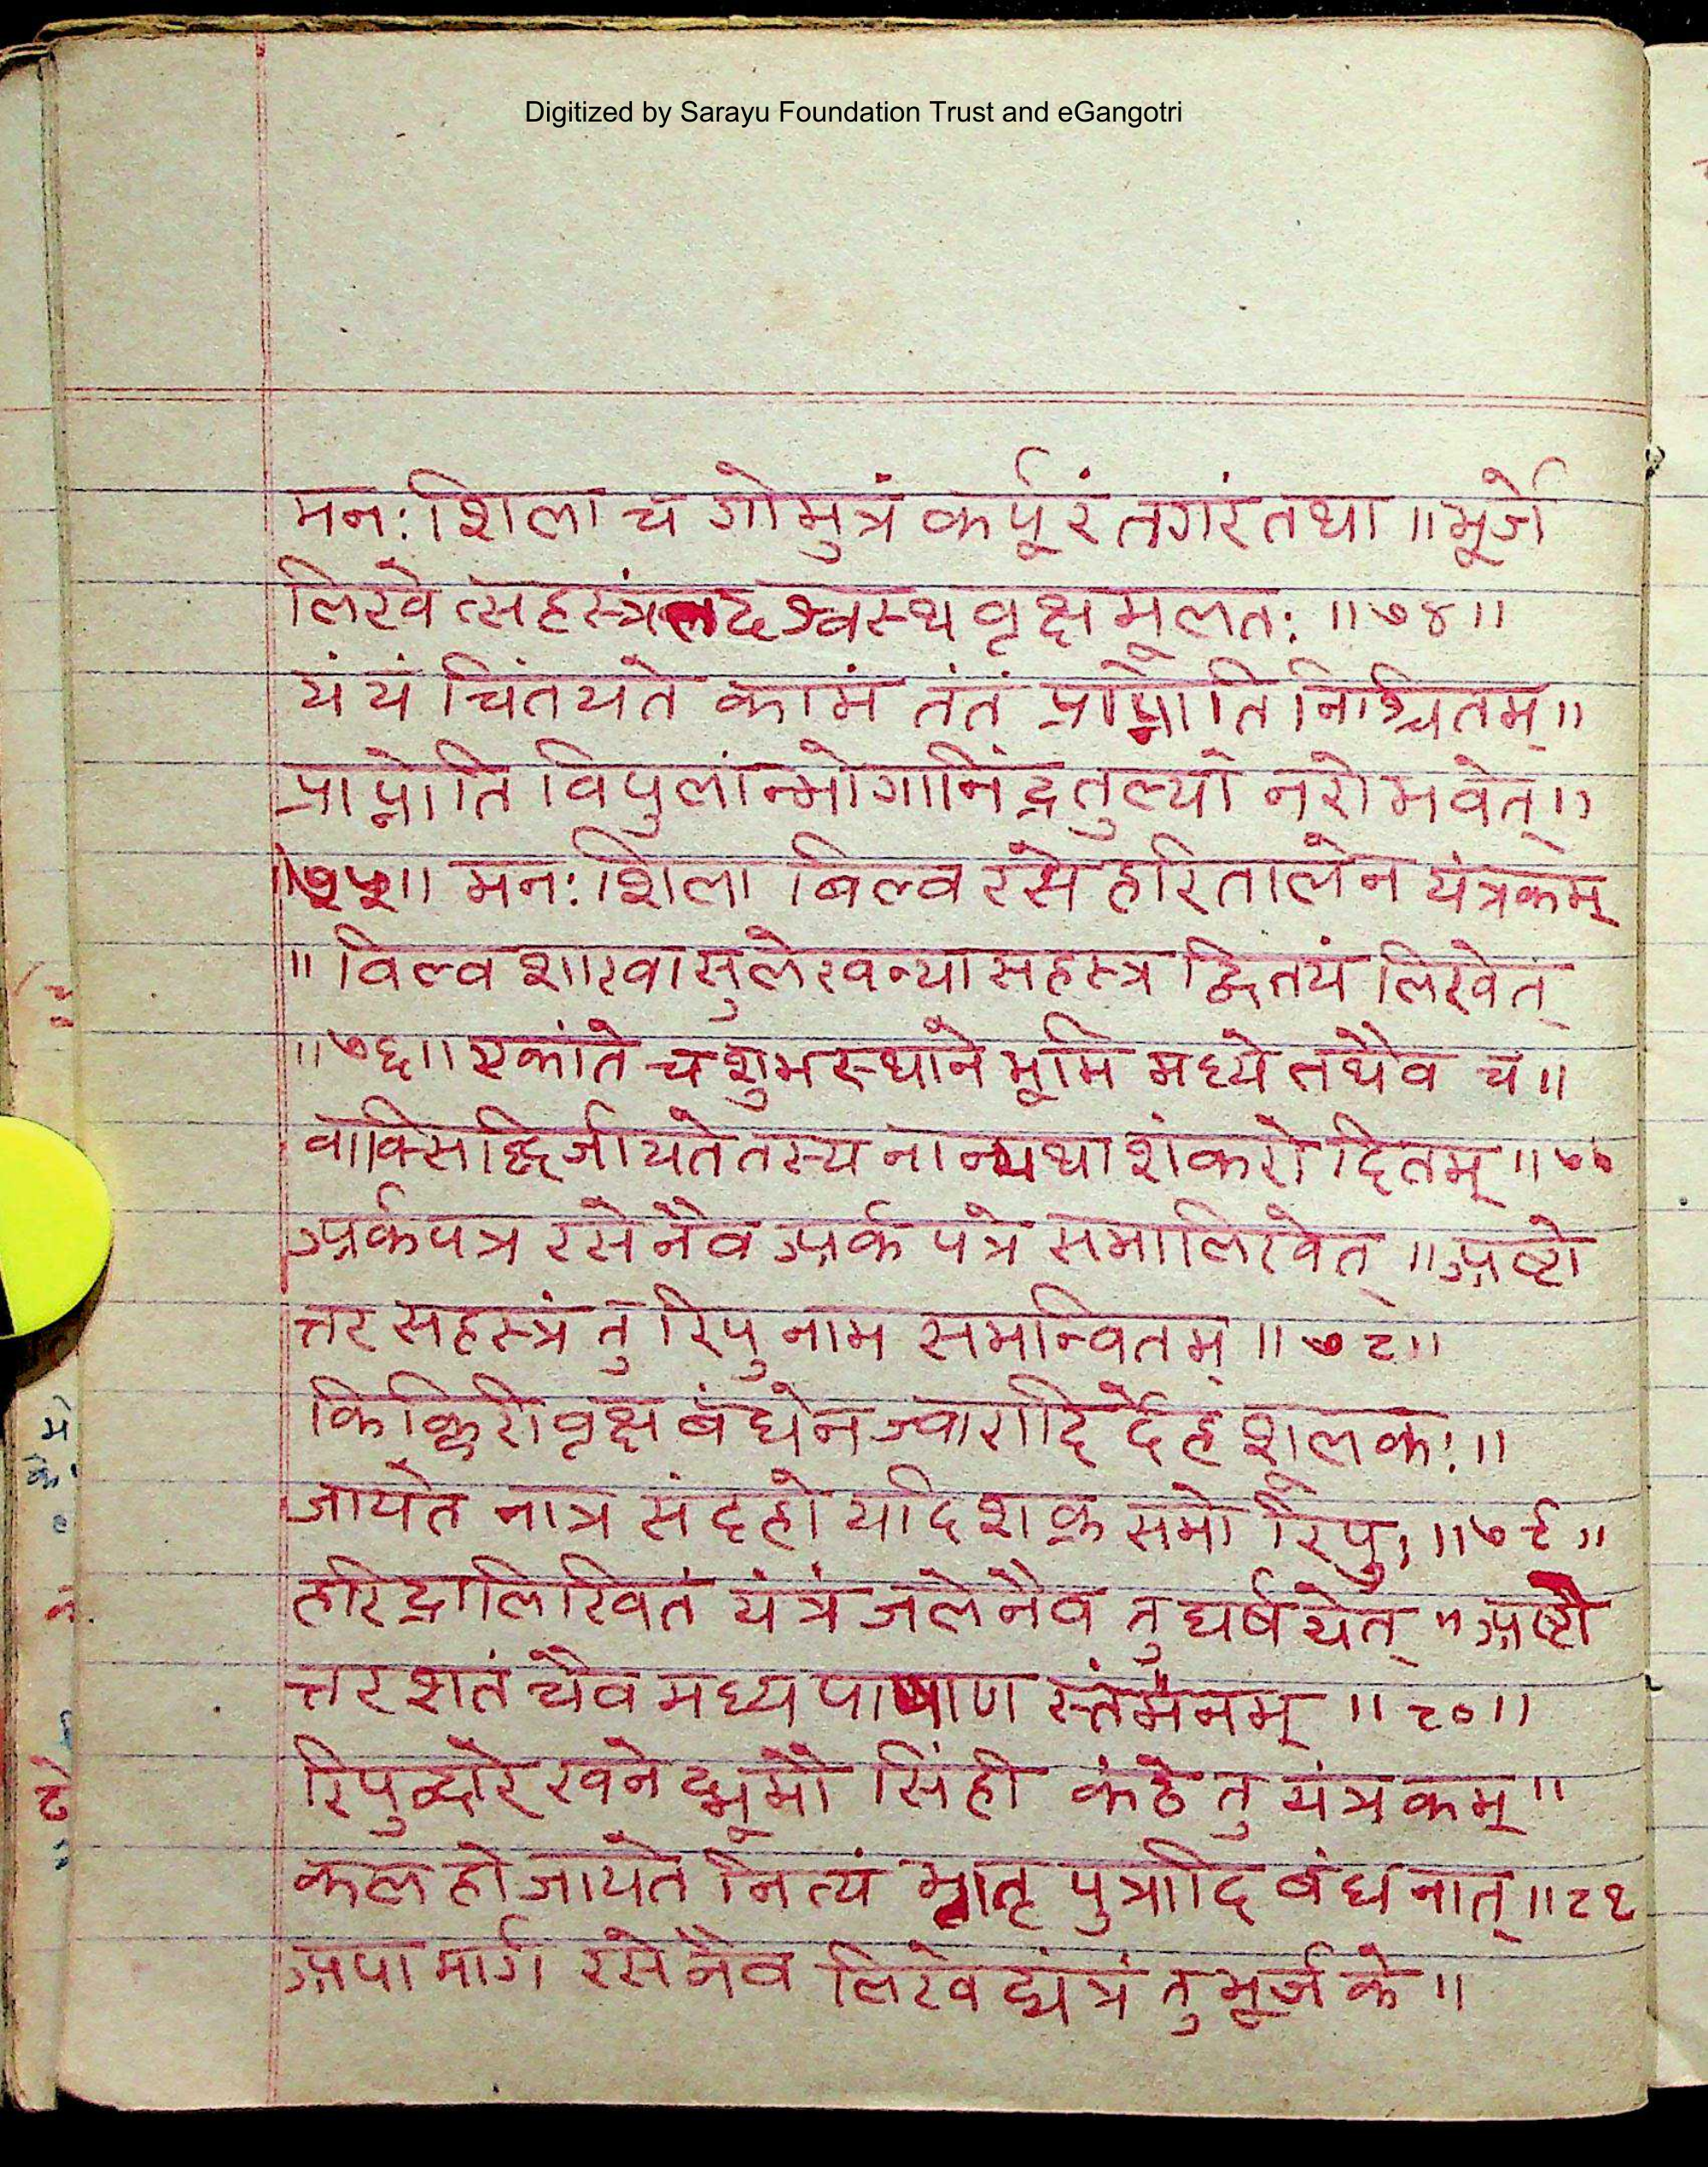 Digitized by Sarayu Foundation Trust and eGangotri
मनःशिला च गोमुत्रं कर्पूरं तगरं तथा ॥भूर्जे
लिखेत्सहस्त्रं तदश्वस्थ वृक्ष मूलतः ॥७४॥
यं यं चिंतयते कामं तंतं प्राप्नोति निश्चितम्॥
प्राप्नोति विपुलांन्भोगानिंद्रतुल्यो नरोभवेत्॥
॥७५॥ मनःशिला बिल्व रसे हरितालेन यंत्रकम्
॥विल्व शाखासुलेखन्या सहस्त्र द्वितयं लिखेत्
॥७६॥ एकांते च शुभस्थाने भूमि मध्ये तथैव च॥
वाक्सिद्धिर्जायते तस्य नान्यथा शंकरोदितम्॥७७
अर्कपत्र रसेनैव अर्क पत्रे समालिखेत् ॥अष्टो
त्तर सहस्त्रं तु रिपु नाम समन्वितम् ॥७८॥
किंकिरीवृक्ष बंधेन ज्वारादिर्देह शूलकः॥
जायेत नात्र संदहो यदि शक्र समो रिपुः॥७९॥
हरिद्रालिखितं यंत्रं जलेनैव तु घर्षयेत् ॥अष्टो
त्तर शतं चैव मध्य पाषाण स्तंभनम् ॥८०॥
रिपुद्वारे खनेद्भूमौ सिंही कंठे तु यंत्रकम्॥
कलहो जायते नित्यं भ्रातृ पुत्रादि बंधनात्॥८१
अपामार्ग रसेनैव लिखेद्यंत्रं तु भूर्जके॥